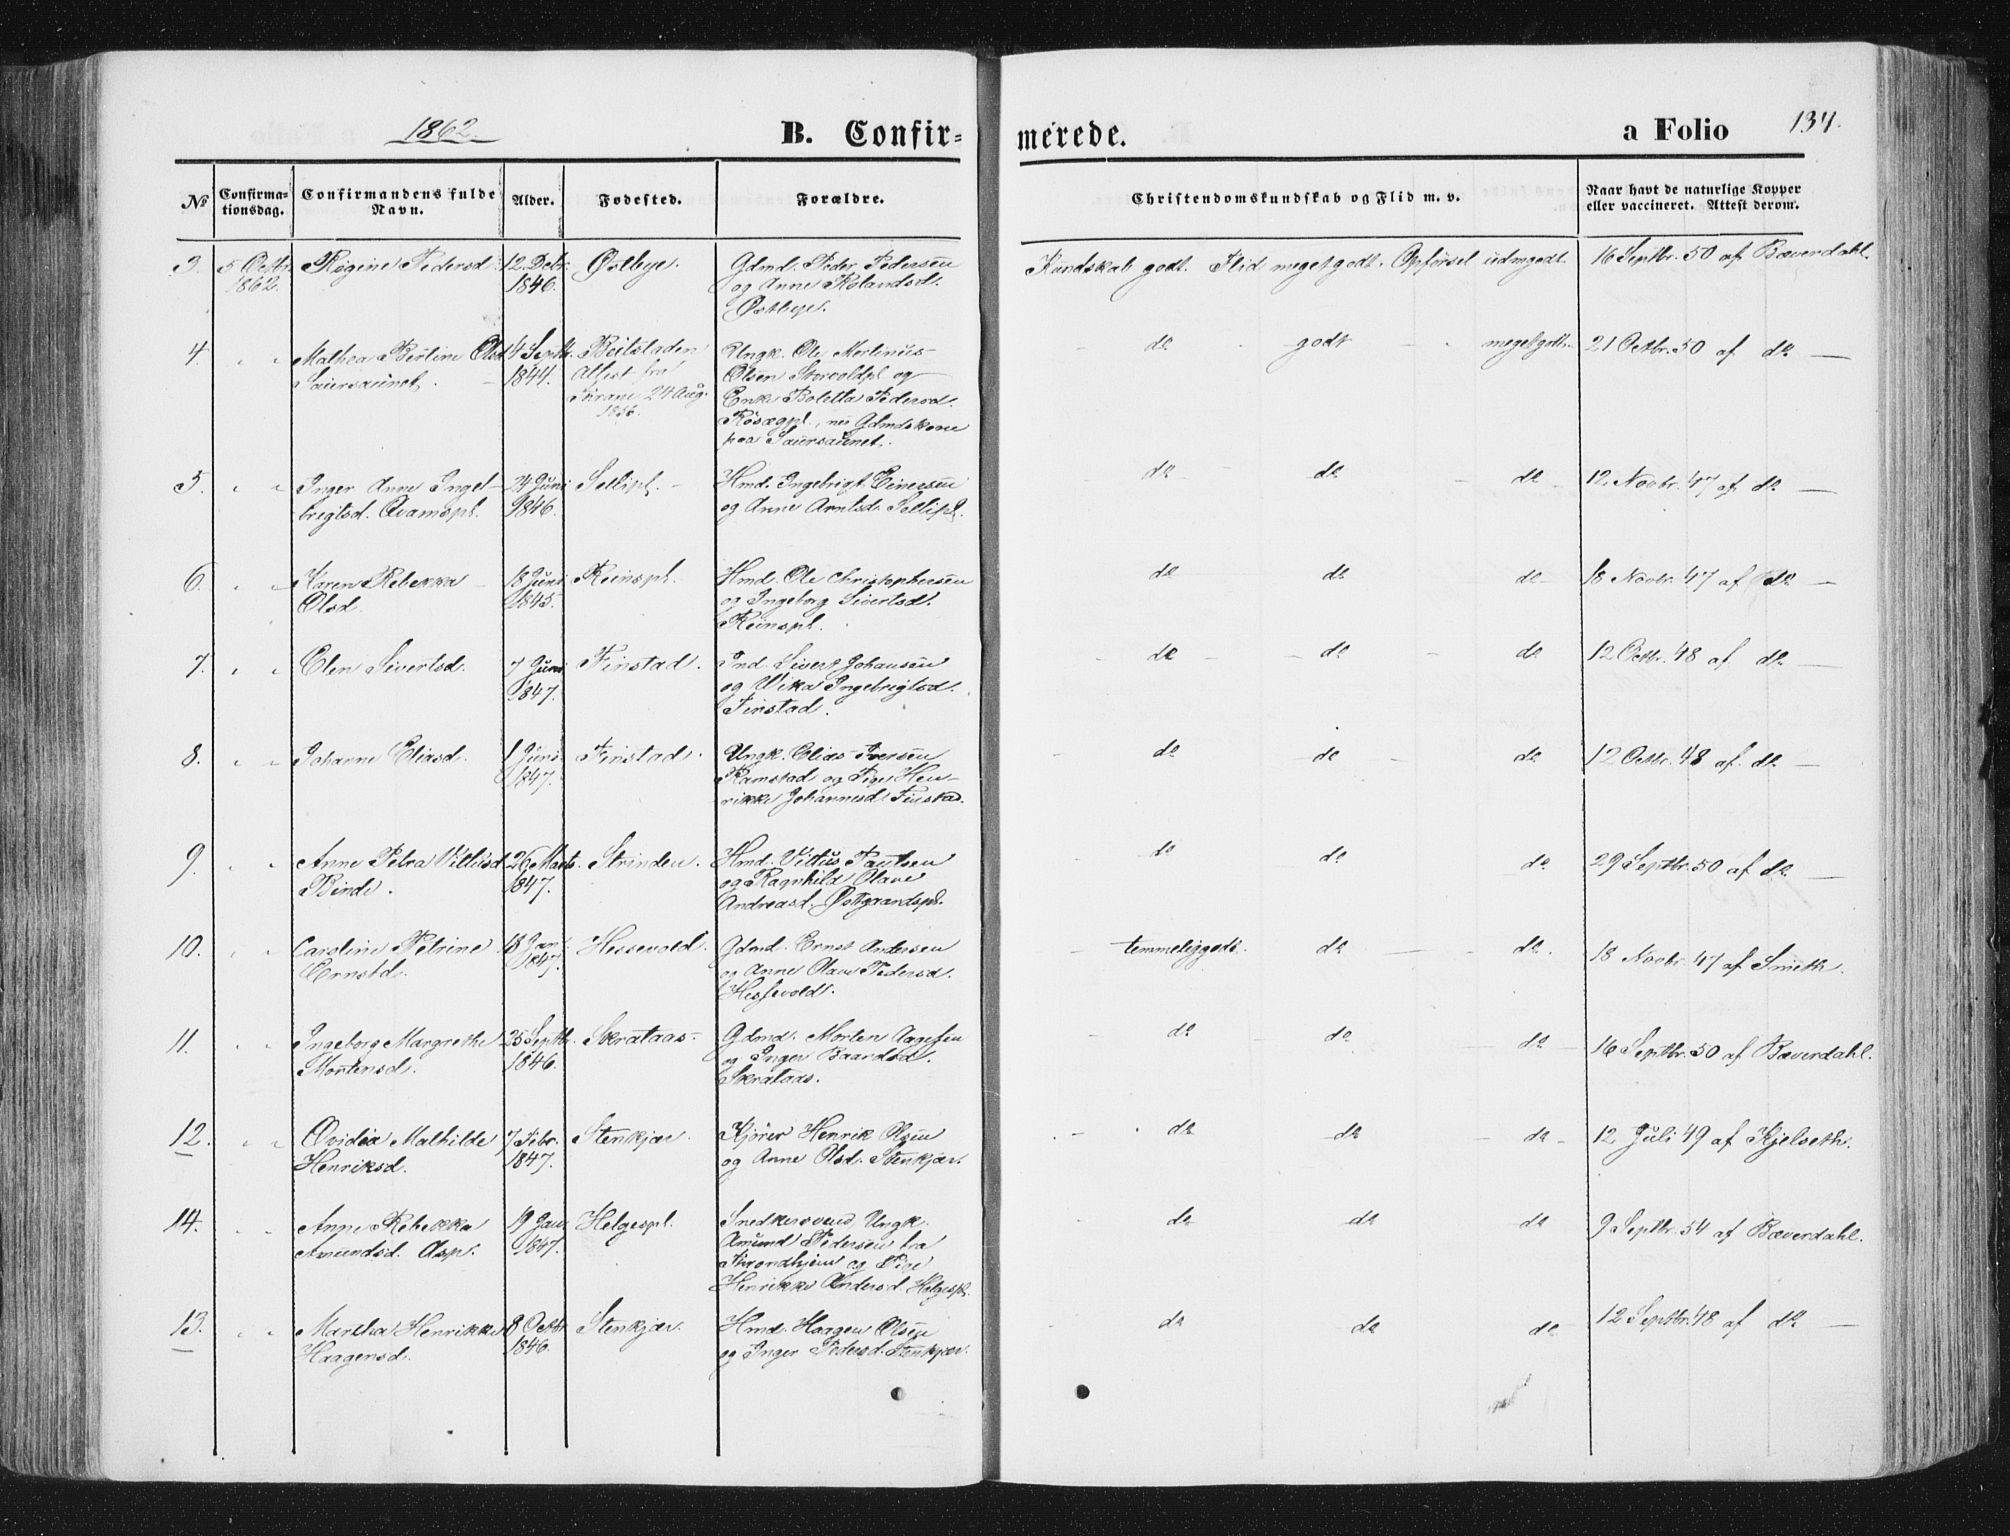 1862.
B. Confir=
merede.
a Folio
134.
No
Confirma-
tionsdag.
Confirmandens fulde
Navn.
Alder.
Fødested.
Forældre.
Christendomskundskab og Flid m. v.
Naar havt de naturlige Kopper
eller vaccineret. Attest derom.
3. 5 Octbr. Regine Pedersd. 12 Debr. Østbye. Gdmd. Peder Pedersen Kundskab godt. Flid megetgodt. Opførsel udmgodt. 16 Septbr. 50 af Bæverdahl.
1862. 1846. og Anne Rolandsd.
Østbye.
4. " " Mathea Bertine Olsd. 14 Septbr. Beitstaden Ungk. Ole Martinus do godt megetgodt. 21 Octbr. 50 af do
Saursaunet. 1844. Attest fra Olsen Storvoldpl og
24 Aug. Enke Boletta Pedersd.
1856. nu Gdmdskone
paa Saursaunet.
5. " " Inger Anne Ingel- 24 Juni Sellipl. Hmd. Ingebrigt Einersen do do do 12 Novbr. 47 af do
brigtsd. Qvamspl. 1846. og Anne Arntsd. Sellipl.
6. " " Karen Rebekka 18 Juni Reinspl. Hmd. Ole Christophersen do do do 18 Novbr. 47 af do
Olsd. 1845. og Ingeborg Sivertsd.
Reinspl.
7. " " Elen Sivertsd. 7 Juni Finstad. Ind. Sivert Johansen do do do 12 Octbr. 48 af do
1847. og Ingebrigtsd.
Finstad.
8. " " Johanne Eliasd. 1 Juni Finstad. Ungk. Elias Iversen do do do 12 Octbr. 48 af do
1847. Ramstad og Pige Hen-
rikke Johannesd. Finstad.
9. " " Anne Petra Vittusd. 26 Marts Strinden. Hmd. Vittus Paulsen do do do 29 Septbr. 50 af do
Binde. 1847. og Ragnhild Olave
Andreasd. Østgaardspl.
10. " " Caroline Petrine 18 Jan. Hessevold. Gdmd. Ernst Andersen temmeliggodt. do do. 18 Novbr. 47 af Smeth.
Ernstd. 1847. og Anne Olave Pedersd.
Hessevoldt.
11. " " Ingeborg Margrethe 25 Septbr. Skrataas. Gdmd. Morten Aagesen do do do 16 Septbr. 50 af Bæverdahl.
Mortensd. 1846. og Inger Baardsd.
Skrataas.
12. " " Ovidia Mathilde 7 Febr. Stenkjær. Kjører Henrik Olsen do do do 12 Juli 49 af Kjelseth.
Henriksd. 1847. og Anne Olsd. Stenkjær.
14. " " Anne Rebekka 19 Jan. Helgespl. Snedkersvend Ungk. do do do 9 Septbr. 54 af Bæverdahl.
Amundsd. Asp. 1847. Amund Pedersen fra
Throndhjem og Pige
Henrikke Andersd. Helgespl.
13. " " Martha Henrikke 8 Octbr. Stenkjær. Hmd. Haagen Olsen do do do 12 Septbr. 48 af do
Haagensd. 1846. og Inger Pedersd. Stenkjær.